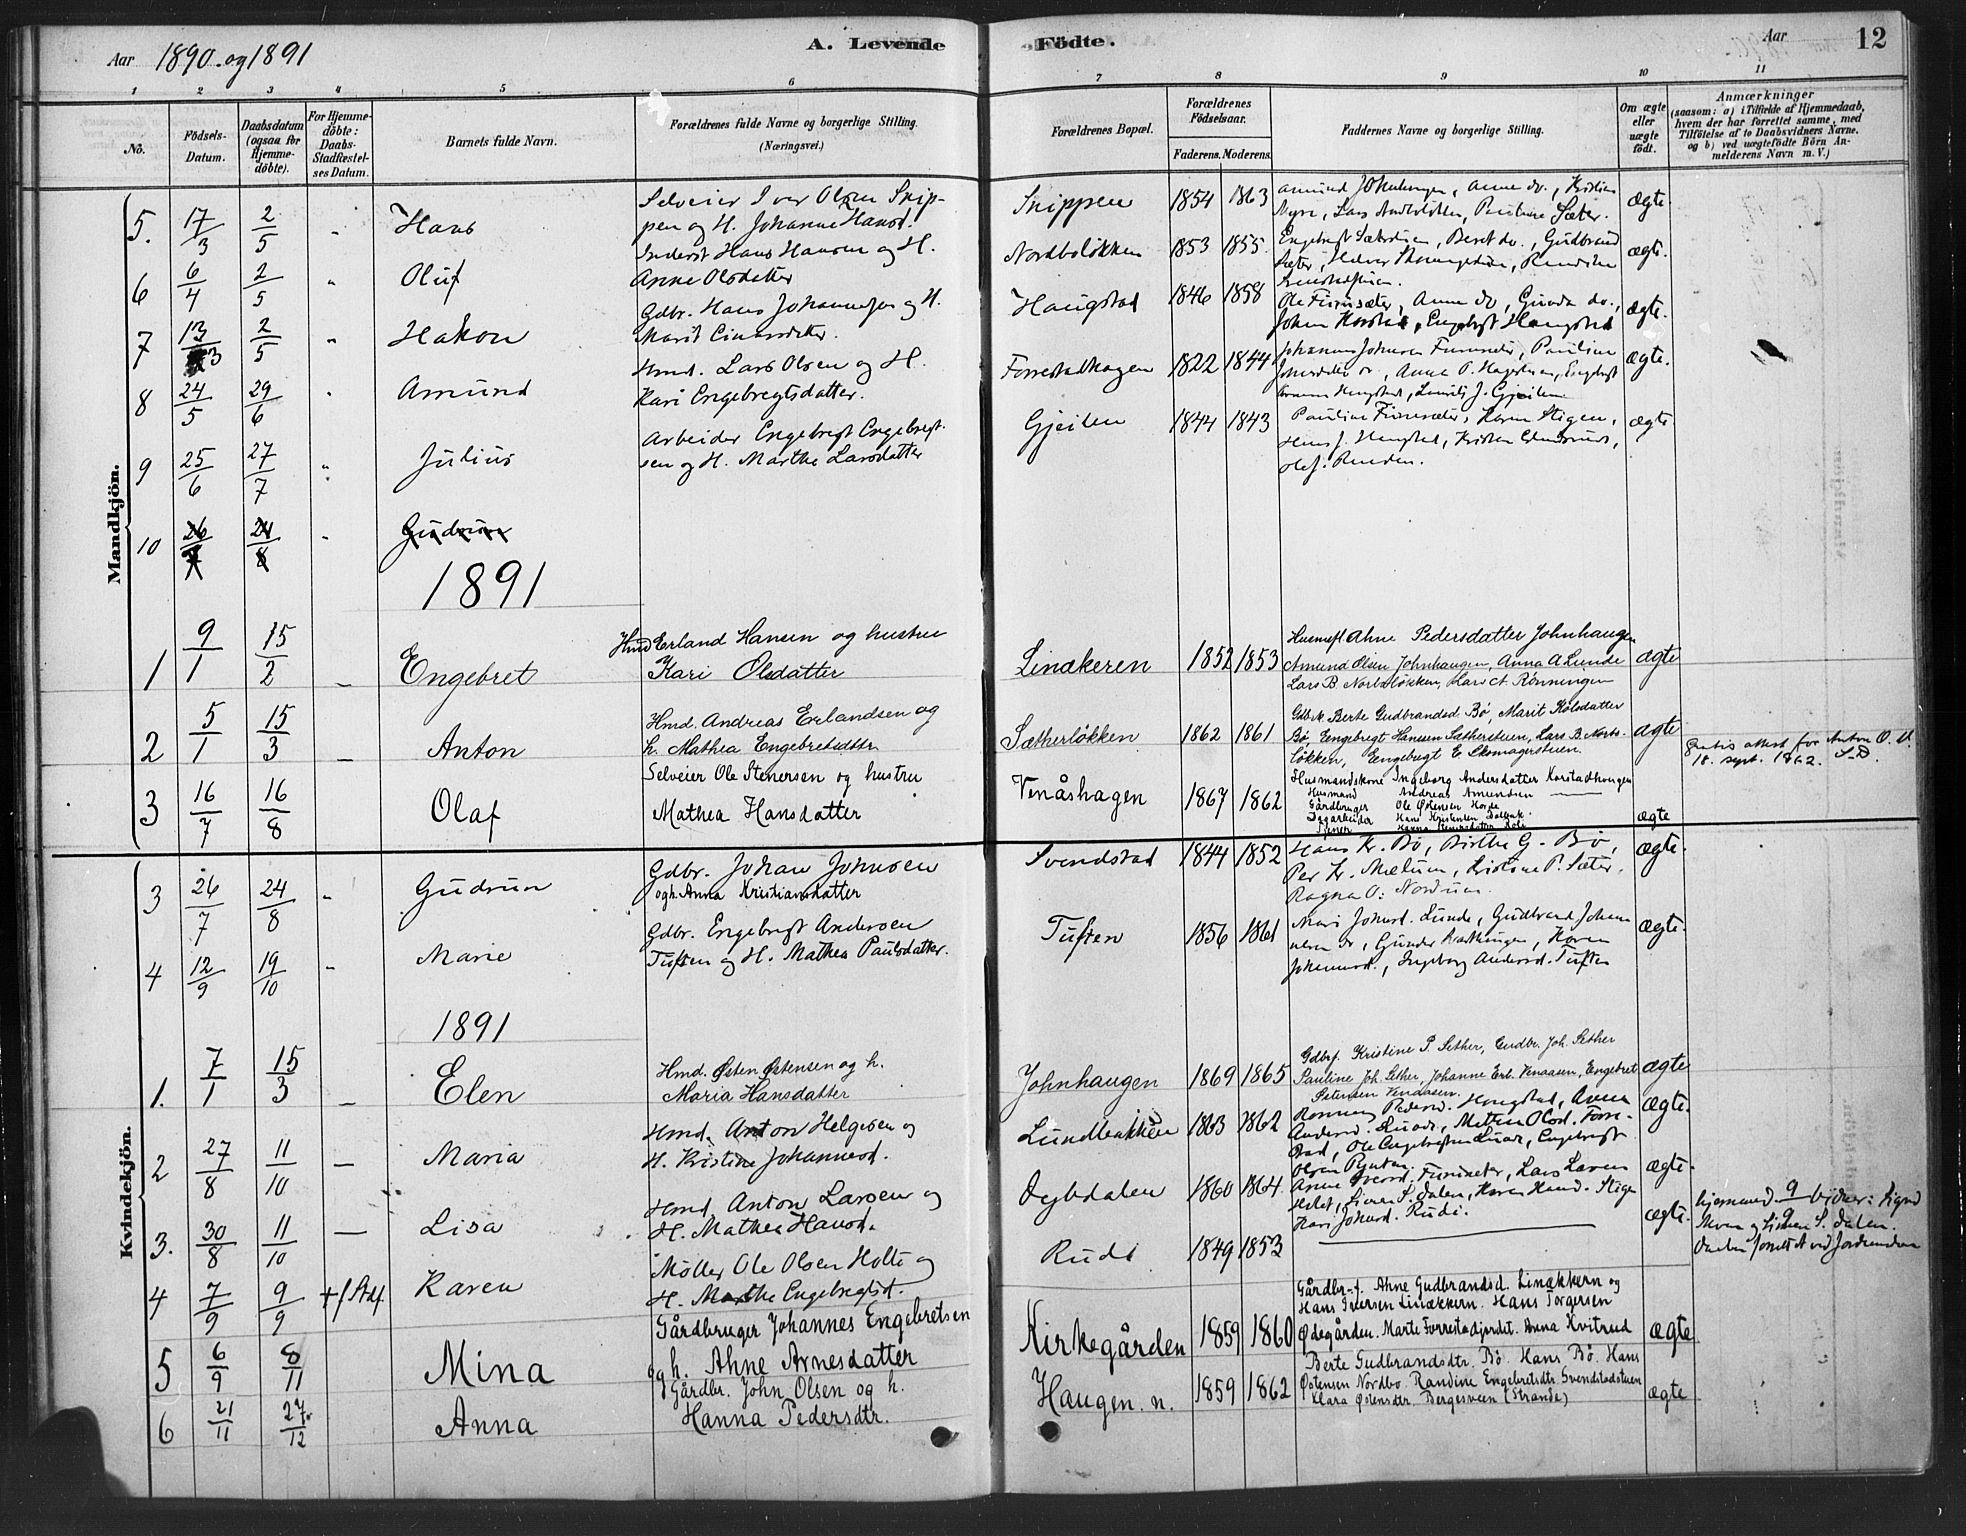 Aar 1890. og 1891
A. Levende Fødte.
Aar 12
1 2 3 4 5 6 7 8 9 10 11
No.
Fødsels-Datum.
Daabsdatum (ogsaa for Hjemme-døbte).
For Hjemme-døbte: Daabs-Stadfæstel-ses Datum.
Barnets fulde Navn.
Forældrenes fulde Navne og borgerlige Stilling. (Næringsvei.)
Forældrenes Bopæl.
Forældrenes Fødselsaar.
Faderens. Moderens.
Faddernes Navne og borgerlige Stilling.
Om ægte eller uægte født.
Anmærkninger
(saasom: a) i Tilfælde af Hjemmedaab, hvem der har forrettet samme, med Tilføielse af to Daabsvidners Navne. og b) ved uægtefødte Børn An-melderens Navn m. V.)
Mandkjön.
5. 17/3 2/5 " Hans Selveier Iver Olsen Snip-
pen og H. Johanne Hansd. Snippen 1854 1863 Amund Johnhaugen, Anne do., Kristian
Myre, Lars Nordboløkken, Pauline Sæter. Ægte.
6 6/4 2/5 " Oluf Inderst Hans Hansen og H.
Anne Olsdatter Nordboløkken 1853 1855. Engebregt Sæterstuen, Beret do., Gudbrand
Sæter, Ægte.
7 13/3 2/5 " Hakon Gdbr. Hans Johannesen og H.
Marit Einarsdatter. Haugstad 1846 1858 Ole Furusæter, Anne do, Gunda do.,
Johan Korstad, Engebregt Haugstad Ægte.
8 24/5 29/6 " Amund Hmd. Lars Olsen og H.
Kari Engebregtsdatter. Forrestadhagen 1822 1844 Johannes Johnsen Furusæter, Pauline
Johnsdatter do, Anne P. Ægte.
9 25/6 27/7 " Julius Arbeider Engebregt Engebregt-
sen og H. Marthe Larsdatter Gjeilen 1844 1843 Pauline Furusæter, Karen Stigen,
Hans J. Haugstad, Kristen
Olaf. Ægte
10 26/7 24/8 " Gudrun
1891
1 9/1 15/2 – Engebret Hmd Erland Hansen og hustru
Kari Olsdatter Linækeren 1852 1853 Husmkfl Ahne Pedersdatter Johnhaugen
Amund Olsen Johnhaugen, Anna A Lunde
Lars B. Norbøløkken, Lars A. Rønningen ægte
2 5/1 15/3 – Anton Hmd. Andreas Erlandsen og
h. Mathea Engebretsdttr Sætherløkken 1862 1861 Gdbrk. Berte Gudbrandsd. Bø, Marit Kolsdatter
Bø Engebregt Hansen Sætherstuen, Lars B. Norbø-
løkken, Engebregt E. Skomagerstuen ægte gratis attest for Anton O. V.
18. sept.
3 16/7 16/8 Olaf Selveier Ole Stenersen og hustru
Mathea Hansdatter Venåshagen 1867 1862 Husmandskone Ingeborg Andersdatter Korstadhougen
Husmand Andreas Amundsen —
Gårdbruger Ole Østensen Horde
Dagarbeider Hans Kristensen Dalbak
ægte
3 26/7 24/8 " Gudrun Gdbr. Johan Johnsen
og h. Anna Kristiansdatter Svendstad 1844 1852 Hans K. Bø, Birthe G. Bø,
Per K. Mælum, Kristine P. Sæter,
Ragna O. Nordrum. Ægte.
4 12/9 19/10 " Marie Gdbr. Engebregt Andersen
Tuften og H. Mathea Paulsdatter. Tuften 1856 1861 Mari Johnsd. Lunde, Gudbrand Johan-
nesen do, Gunder Bratthaugen, Karen
Johannesd., Ingeborg Andersd. Tuften Ægte.
1891
Kvindekjön.
1. 7/1 15/3 – Elen Hmd. Østen Østensen og h.
Maria Hansdatter Johnhaugen 1869 1865 Gdbrf. Kristine P. Sether, Gudbr. Joh. Sether
Pauline Joh. Sether, Johanne Erl. Venaasen, Engebret
Petersen Venaasen. ægte
2 27/8 11/10 – Maria Hmd. Anton Helgesen og
H. Kristine Johannesd. Lundbakken 1863 1862 Pedersd. Haugstad, Anne
Andersd. Lunde, Mathea Olsd. Forre-
stad, Ole Engebregtsen Lunde, Engebregt
Olsen Ægte.
3. 30/8 11/10 – Lisa Hmd. Anton Larsen og
H. Mathea Hansd. Dybdalen 1860 1864 Anne Iversd. Furusæter, Lars Larsen
Holet, Simen S. Dalen, Karen Hansd. Stigen
Kari Johnsd. Rudi. Ægte.
4 7/9 9/9 Karen Møller Ole Olsen Holte og
H. Marthe Engebregtsd. Rudi 1849 1853 — Ægte. Hjemmed. 9/9 Vidner: Sigrid
Moen og Simen S. Dalen.
5 6/9 8/11 Mina Gårdbruger Johannes Engebretsen
og h. Ahne Arnesdatter Kirkegården 1859 1860 Gårdbr-f. Ahne Gudbrandsd. Linækkern og
Hans Iversen Linækkern. Hans Torgersen
Ødegården. Marte Forrestadjordet. Anna Kvitrud ægte
6 21/11 27/12 Anna Gårdbr. John Olsen og h.
Hanna Pedersdtr. Haugen. n. 1859 1862 Berte Gudbrandsdtr. Bø. Hans Bø. Hans
Østensen Nordbo. Randine Engebretsdtr. Svendstadstuen
Klara Østensdtr. Bergesveen (Strande) ægte